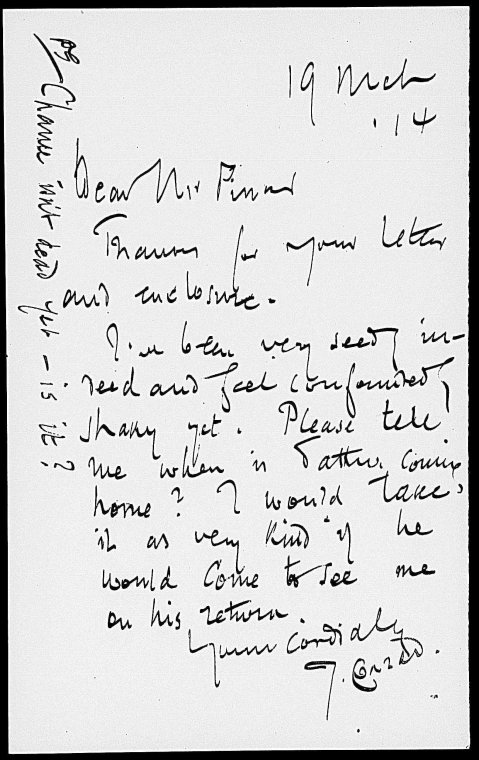 19 Mch
. 14
Dear Mr Pinker
Thanks for your letter
and enclosure.
I've been very seedy in-
deed and feel confoundedly
shaky yet. Please tell
me when is Father coming
home? I would take
it as very kind if he
would come to see me
on his return.
Yours cordially
J. Conrad.
PS Chance isn't dead yet – is it?